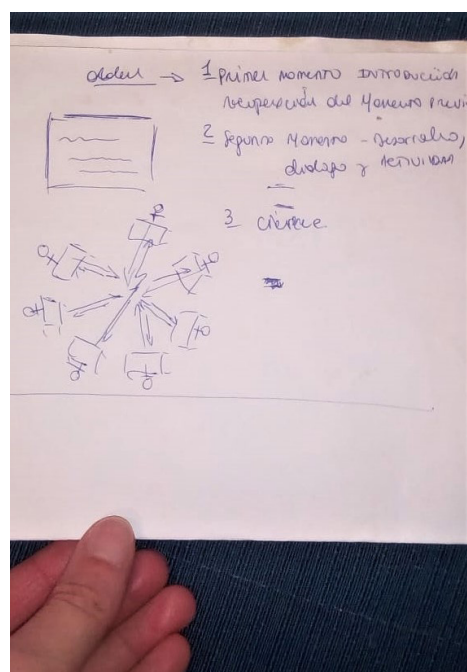 orden → 1 Primer momento INTRODUCCIÓN
recuperación del Momento Previo
2 Segundo Momento - Desarrollo,
dialogo y Actividad
3 cierre